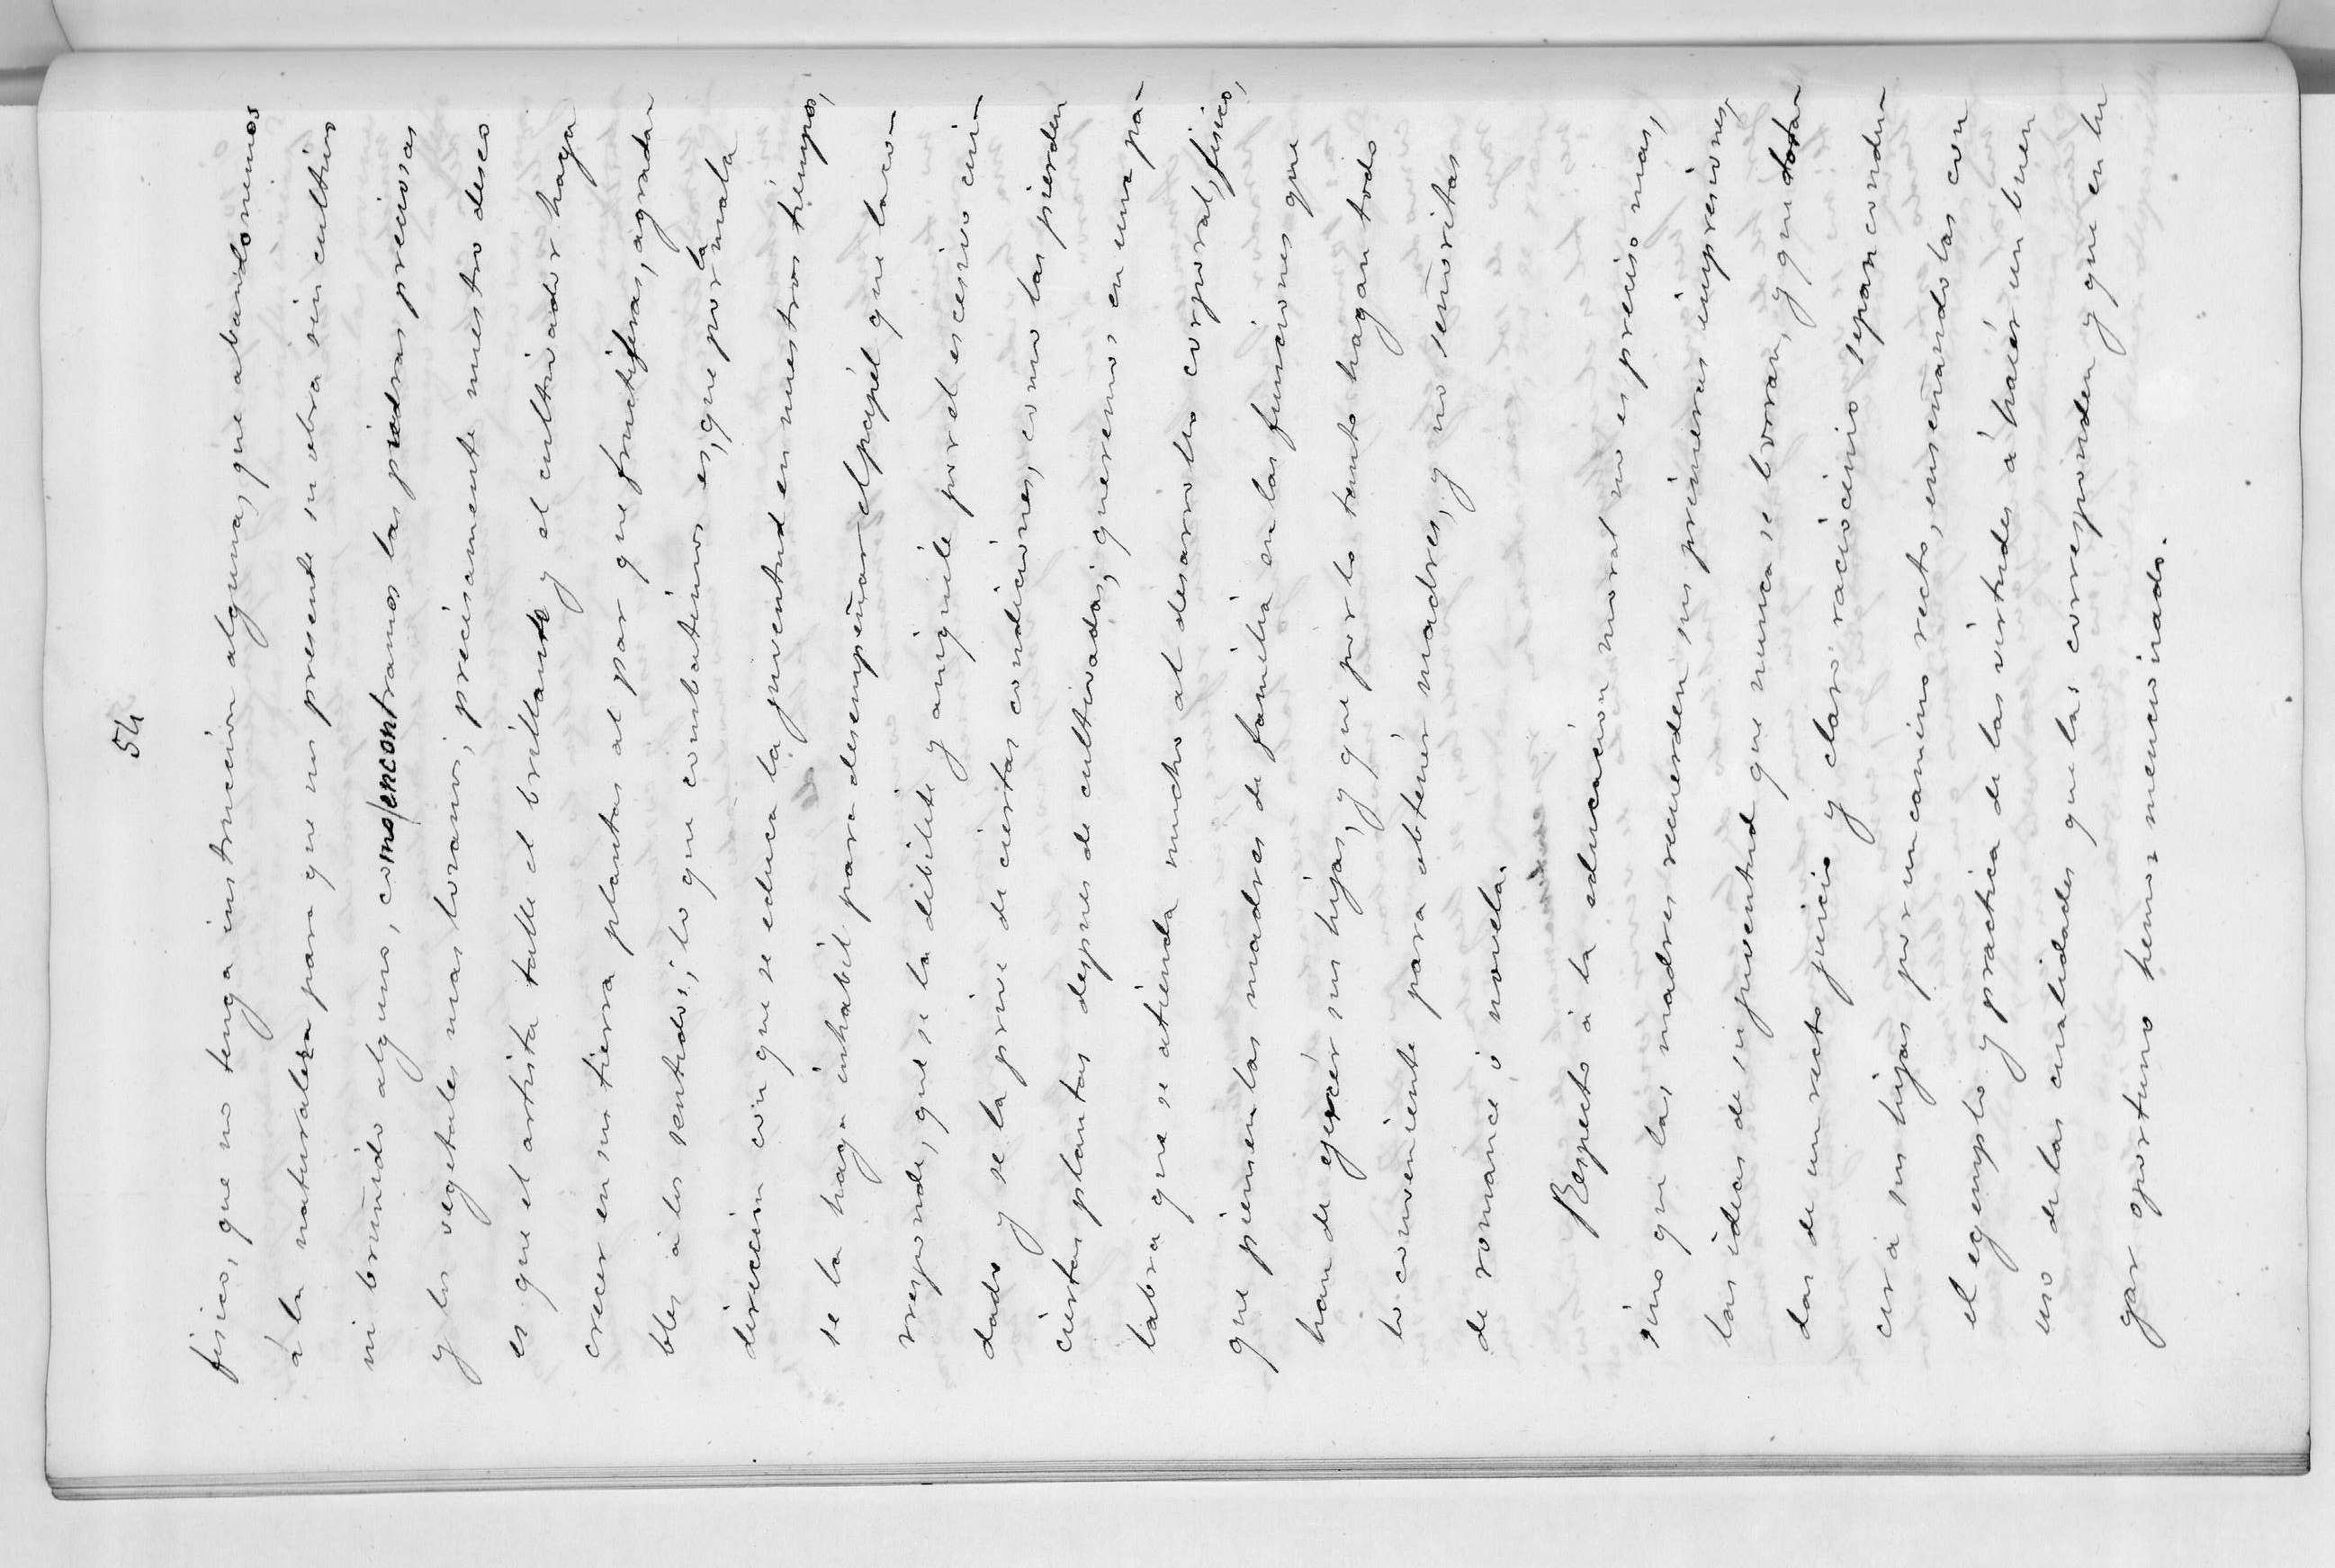 54
fisico, que no tenga instrucción alguna, que abandonemos
á la naturaleza para que nos presente su obra sin cultivo
ni bruñido alguno, como encontramos las piedras preciosas
y los vegetales mas loranos; precisamente nuestro deseo
es que el artista talle el brillante y el cultivador haga
crecer en su tierra plantas al par que fructiferas, agrada-
bles á los sentidos; lo que combatimos es, que por la mala
dirección con que se educa la juventud en nuestros tiempos,
se la haga inhabil para desempeñar el papel que la co-
rresponde, que se la dibilite y aniquile por el escesivo cui-
dado y se la prive de ciertas condiciones, como las pierden
ciertas plantas despues de cultivadas; queremos en una pa-
labra que se atienda mucho al desarrollo corporal, fisico,
que piensen las madres de familia en las funciones que
han de ejercér sus hijas, y que por lo tanto hagan todo
lo conveniente para obtenér madres, y no señoritas
de romance ó novela.
Respecto á la educación moral no es preciso mas,
sino que las madres recuerden sus primeras impresiones,
las ideas de su juventud que nunca se borran, y que dota-
das de un recto juicio y claro raciocinio sepan condu-
cir á sus hijas por un camino recto, enseñandolas con
el egemplo y practica de las virtudes á hacér un buen
uso de las cualidades que las corresponden y que en lu
gar oportuno hemos mencionado.